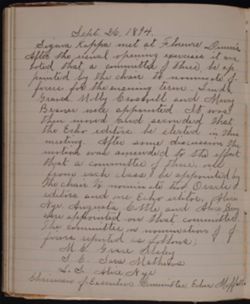 Sept. 26, 1894.
Sigma Kappa met at Florence Dunn's
After the usual opening exercises it was
voted that a committee of three be ap-
pointed by the chair to nominate of-
ficers for the ensuing term. Linda
Graves, Molly and Mary
were appointed. It was
then moved and seconded that
the Echo editors be elected in this
meeting. After some discussion the
motion was amended to the effect
that a committee of three, one
from each class be appointed by
the chair to nominate two Oracle
editors and one Echo editor. Alice
Nye, Augusta and Alice
were appointed on that committee.
The committee on nominations of of-
ficers reported as follows:
M. E. Grace
T. E. Sara Mathews
L. S. Alice Nye
Chairman of Executive Committee, Edna Moffatt